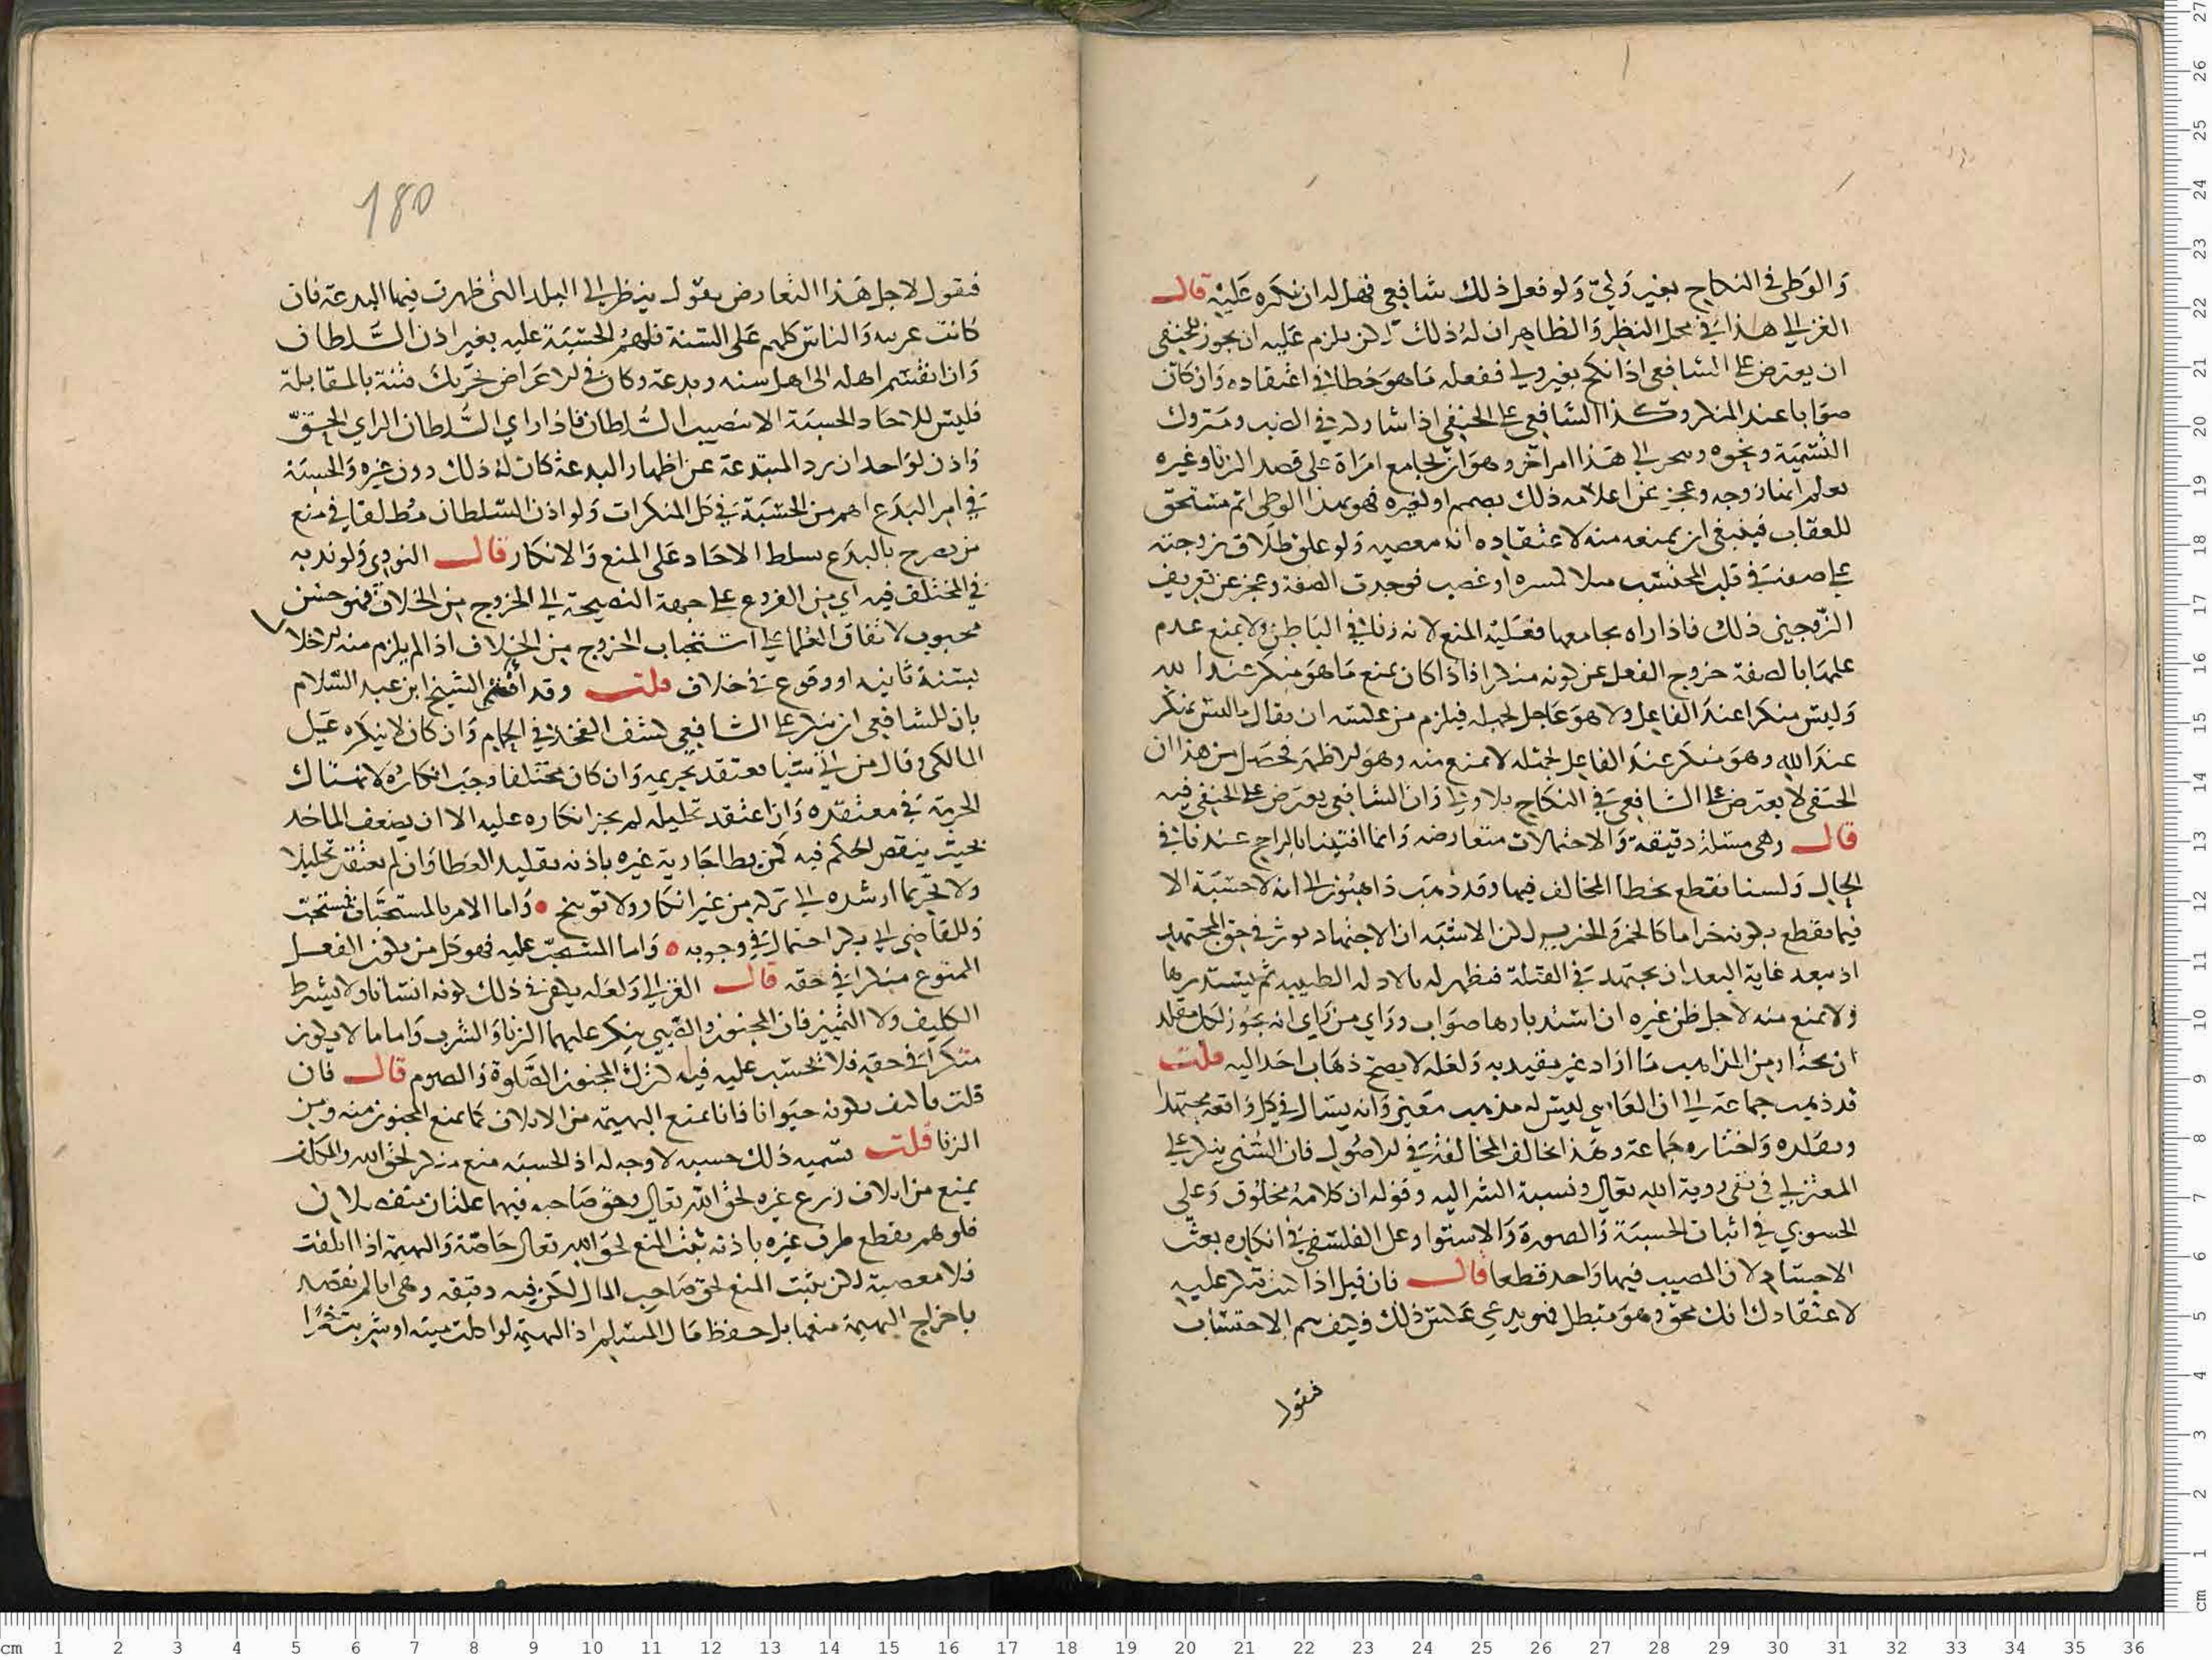 والوطى فى النكاح بغير ولي ولو فعل ذلك شافعي فهل له ان ينكره عليه قال
الغزالي هذا في محل النظر والظاهر ان له ذلك لكن يلزم عليه ان يجوز للحنفي
ان يعترض على الشافعي اذا نكح بغير ولي ففعله ما هو خطا في اعتقاده وان كان
صوابا عند المنكر وكذا الشافعي على الحنفي اذا شاركه في النبيذ ومتروك
التسمية ونحوه وينجر الى هذا امر اخر وهو ان يجامع امراة على قصد الزنا وغيره
يعلم انها زوجه وعجز عن اعلامه ذلك بصمم او لغيره فهو بهذا الوطى اثم مستحق
للعقاب فينبغي ان يمنعه منه لاعتقاده انه معصيه ولو علق طلاق زوجته
على صفة في قلب المحتسب مثلا او غضب فوجدت الصفة وعجز عن تعريف
الزوجين ذلك فاذا راه يجامعها فعليه المنع لانه زنا في الباطن ولا يمنع عدم
علمها بالصفة خروج الفعل عن كونه منكرا فاذا كان يمنع ما هو منكر عند الله
وليس منكرا عند الفاعل ولا هو عاجل لجهله فيلزم من عكسه ان يقال ما ليس بمنكر
عند الله وهو منكر عند الفاعل لجهله لا يمنع منه وهو الاظهر فحصل من هذا ان
الحنفي لا يعترض على الشافعي في النكاح بلا ولي وان الشافعي يعترض على الحنفي فيه
قال وهي مسئلة دقيقة والاحتمالات متعارضه وانما افتينا بالراجح عندنا في
الحال ولسنا نقطع بخطا المخالف فيها وقد ذهب ذاهبون الى انه لا حسبة الا
فيما يقطع بكونه حراما كالخمر والخنزير لكن الاشبه ان الاجتهاد يوثر في حق المجتهد
اذ يبعد غاية البعد ان يجتهد في القبلة فتظهر له بالادله الطيبه ثم يستدبرها
ولا يمنع منه لاجل ظن غيره ان استدبارها صواب وراي من راي انه يجوز لكل مقلد
ان يختار من المذاهب ما اراد غير مقيد به ولعله لا يصح ذهاب احد اليه قلت
قد ذهب جماعة الى ان العامي ليس له مذهب معين وانه يسال في كل واقعة مجتهدا
ويقلده واختاره جماعة وهذا بخالف المخالفة في الاصول فان السني ينكر على
المعتزلي في نفي روية الله تعالى ونسبة الشر اليه وقوله ان كلامه مخلوق وعلى
الحشوي في اثبات الحسبة والصورة والاستوا وعلى الفلسفي في انكاره بعث
الاجسام لان المصيب فيها واحد قطعا قال فان قيل اذا كنت تنكر عليه
لاعتقادك انك محق وهو مبطل فهو يدعي عكس ذلك فكيف يتم الاحتساب
فنقول
180
فنقول لاجل هذا التعارض نقول ينظر الى البلد التي ظهرت فيها البدعة فان
كانت غريبه والناس كلهم على السنة فلهم الحسبة عليه بغير اذن السلطان
وان انقسم اهله الى اهل سنه وبدعة وكان في الاعراض تحريك فتنة بالمقابلة
فليس للاحاد الحسبة الا بتنصيب السلطان فاذا راي السلطان الراي الحق
واذن لواحد ان يرد المبتدعة عن اظهار البدعة كان له ذلك دون غيره والحسبة
في امر البدع اهم من الحسبة في كل المنكرات ولو اذن السلطان مطلقا في منع
من يصرح بالبدع سلط الاحاد على المنع والانكار قال النووي ولو ندبه
في المختلف فيه اي من الفروع على جهة النصيحة الى الخروج من الخلاف فهو حسن
محبوب لاتفاق العلما على استحباب الخروج من الخلاف اذا لم يلزم منه اخلا
بسنة ثانيه او وقوع في خلاف قلت وقد افتى الشيخ ابن عبد السلام
بان للشافعي ان ينكر على الشافعي كشف الفخذ في الحمام وان كان لا ينكره على
المالكي وقال من اتى شيا معتقد تحريمه وان كان مختلفا وجب انكاره لانتهاك
الحرمة في معتقده وان اعتقد تحليله لم يجز انكاره عليه الا ان يضعف الماخذ
بحيث ينقض الحكم فيه كمن يطا جارية غيره باذنه بقليد لعطا وان لم يعتقد تحليلا
ولا تحريما ارشده الى تركه من غير انكار ولا توبيخ واما الامر بالمستحبات فمستحب
وللقاضي ابي بكر احتمال في وجوبه واما المستحب عليه فهو كل من يكون الفعل
الممنوع منكرا في حقه قال الغزالي ولعله يكفي في ذلك كونه انسانا ولا يشترط
التكليف ولا التمييز فان المجنون والصبي ينكر عليهما الزنا والشرب واما ما لا يكون
منكرا في حقه فلا يحتسب عليه فيه كترك المجنون الصلوة والصوم قال فان
قلت فاكتف بكونه حيوانا فانا نمنع البهيمة من الاتلاف كما نمنع المجنون منه ومن
الزنا قلت تسميه ذلك حسبه لا وجه له اذ الحسبة منع منكر لحق الله والمكلف
يمنع من اتلاف زرع غيره لحق الله تعالى وحق صاحبه فهما علتان منفصلان
فلو هم بقطع طرف غيره باذنه ثبت المنع لحق الله تعالى خاصة والبهيمة اذا اتلفت
فلا معصية لكن يثبت المنع لحق صاحب المال لكن فيه دقيقه وهي انا لم نقصد
باخراج البهيمة منعها بل حفظ مال المسلم اذ البهيمة لو اكلت ميته او شربت خمرا